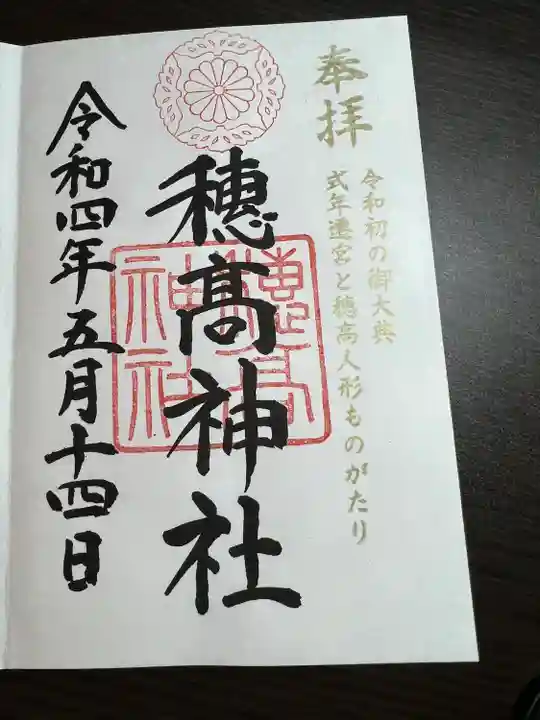 奉拝
令和初の御大典
式年遷宮と穂高人形ものがたり
穂髙神社
令和四年五月十四日